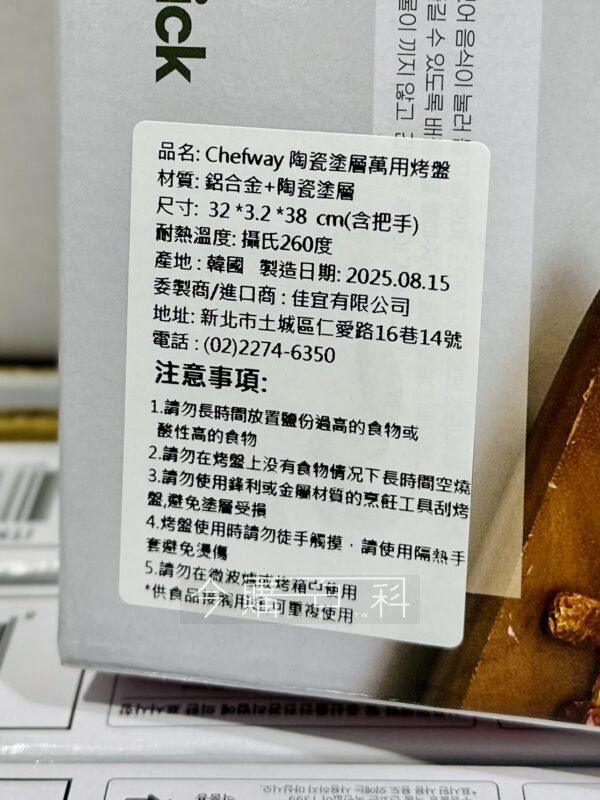 ick
어 음식이 눌러
릴 수 있도록 배
물이 끼지 않고
品名: Chefway 陶瓷塗層萬用烤盤
材質: 鋁合金+陶瓷塗層
尺寸: 32 *3.2 *38 cm(含把手)
耐熱溫度: 攝氏260度
產地 : 韓國 製造日期: 2025.08.15
委製商/進口商 : 佳宜有限公司
地址: 新北市土城區仁愛路16巷14號
電話 : (02)2274-6350
注意事項:
1.請勿長時間放置鹽份過高的食物或
酸性高的食物
2.請勿在烤盤上没有食物情況下長時間空燒
3.請勿使用鋒利或金屬材質的烹飪工具刮烤
盤,避免塗層受損
4.烤盤使用時請勿徒手觸摸，請使用隔熱手
套避免燙傷
5.請勿在微波爐或烤箱內使用
*供食品接觸用途可重複使用
今購百科